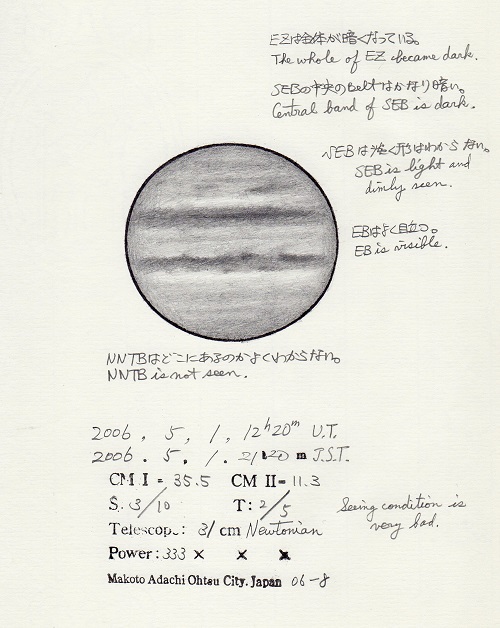 EZは全体が暗くなっている。
The whole of EZ became dark.
SEBの中央のBeltはかなり暗い。
Central band of SEB is dark.
SEBは淡く形はわからない。
SEB is light and
dimly seen.
EBはよく目立つ。
EB is visible.
NNTBはどこにあるのかよくわからない。
NNTB is not seen.
2006, 5, 1, 12h20m U.T.
2006. 5, 1. 21h20 m J.S.T.
CM I = 35.5 CM II= 11.3
S. 3/10 T: 2/5
Seeing condition is
very bad.
Telescope: 31 cm Newtonian
Power: 333 × × ×
Makoto Adachi Ohtsu City. Japan 06-8